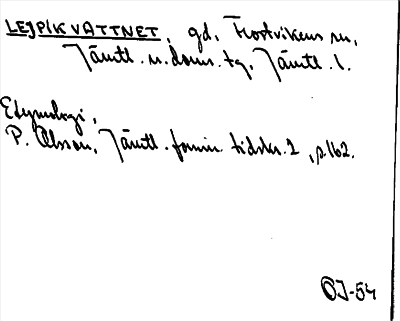 LEJPIKVATTNET, gd, Frostvikens sn,
Jämtl. n. doms. tg, Jämtl. l.
Etymologi,
P. Olsson, Jämtl. fornm. tidskr. 2, p. 162.
OJ-54